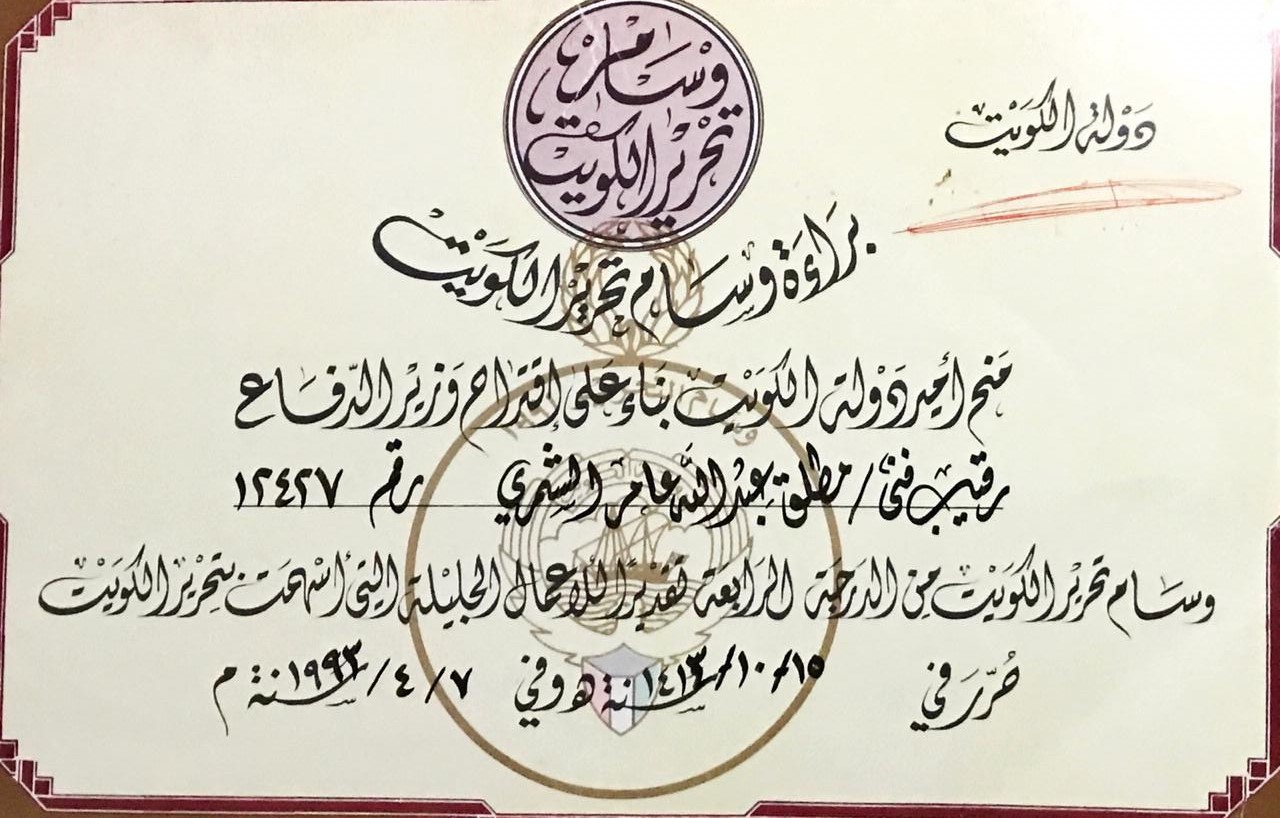 وسام
تحرير الكويت
دولة الكويت
براءة وسام تحرير الكويت
منح أمير دولة الكويت بناء على إقتراح وزير الدفاع
رقيب فني / مطلق عبدالله عامر الشمري رقم ١٢٤٢٧
وسام تحرير الكويت من الدرجة الرابعة تقديراً للأعمال الجليلة التي أسهمت بتحرير الكويت
حُرّر في ١٥/١٠/١٤١٣ سنة هـ وفي ٧/٤/١٩٩٣ سنة م